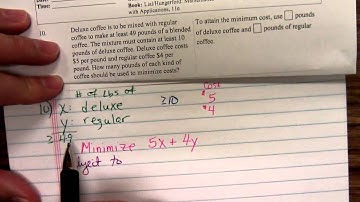 Date:
Book: Lial/Hungerford: Mathematics
with Applications, 11e
10.
Deluxe coffee is to be mixed with regular
coffee to make at least 49 pounds of a blended
coffee. The mixture must contain at least 10
pounds of deluxe coffee. Deluxe coffee costs
$5 per pound and regular coffee $4 per
pound. How many pounds of each kind of
coffee should be used to minimize costs?
To attain the minimum cost, use pounds
of deluxe coffee and pounds of regular
coffee.
# of lbs of
cost
10) x: deluxe ≥10 $5
y: regular $4
≥ 49
Minimize 5x + 4y
to